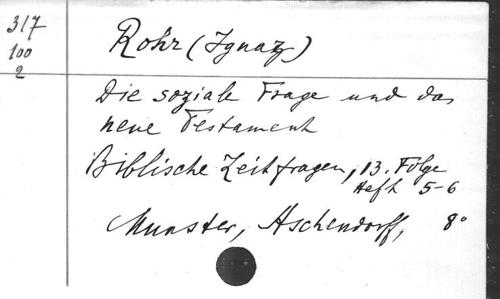 317
100
2
Rohr (Ignaz)
Die soziale Frage und das
neue Testament
Biblische Zeitfragen, 13. Folge
Heft 5-6
Munster, Aschendorff, 8°